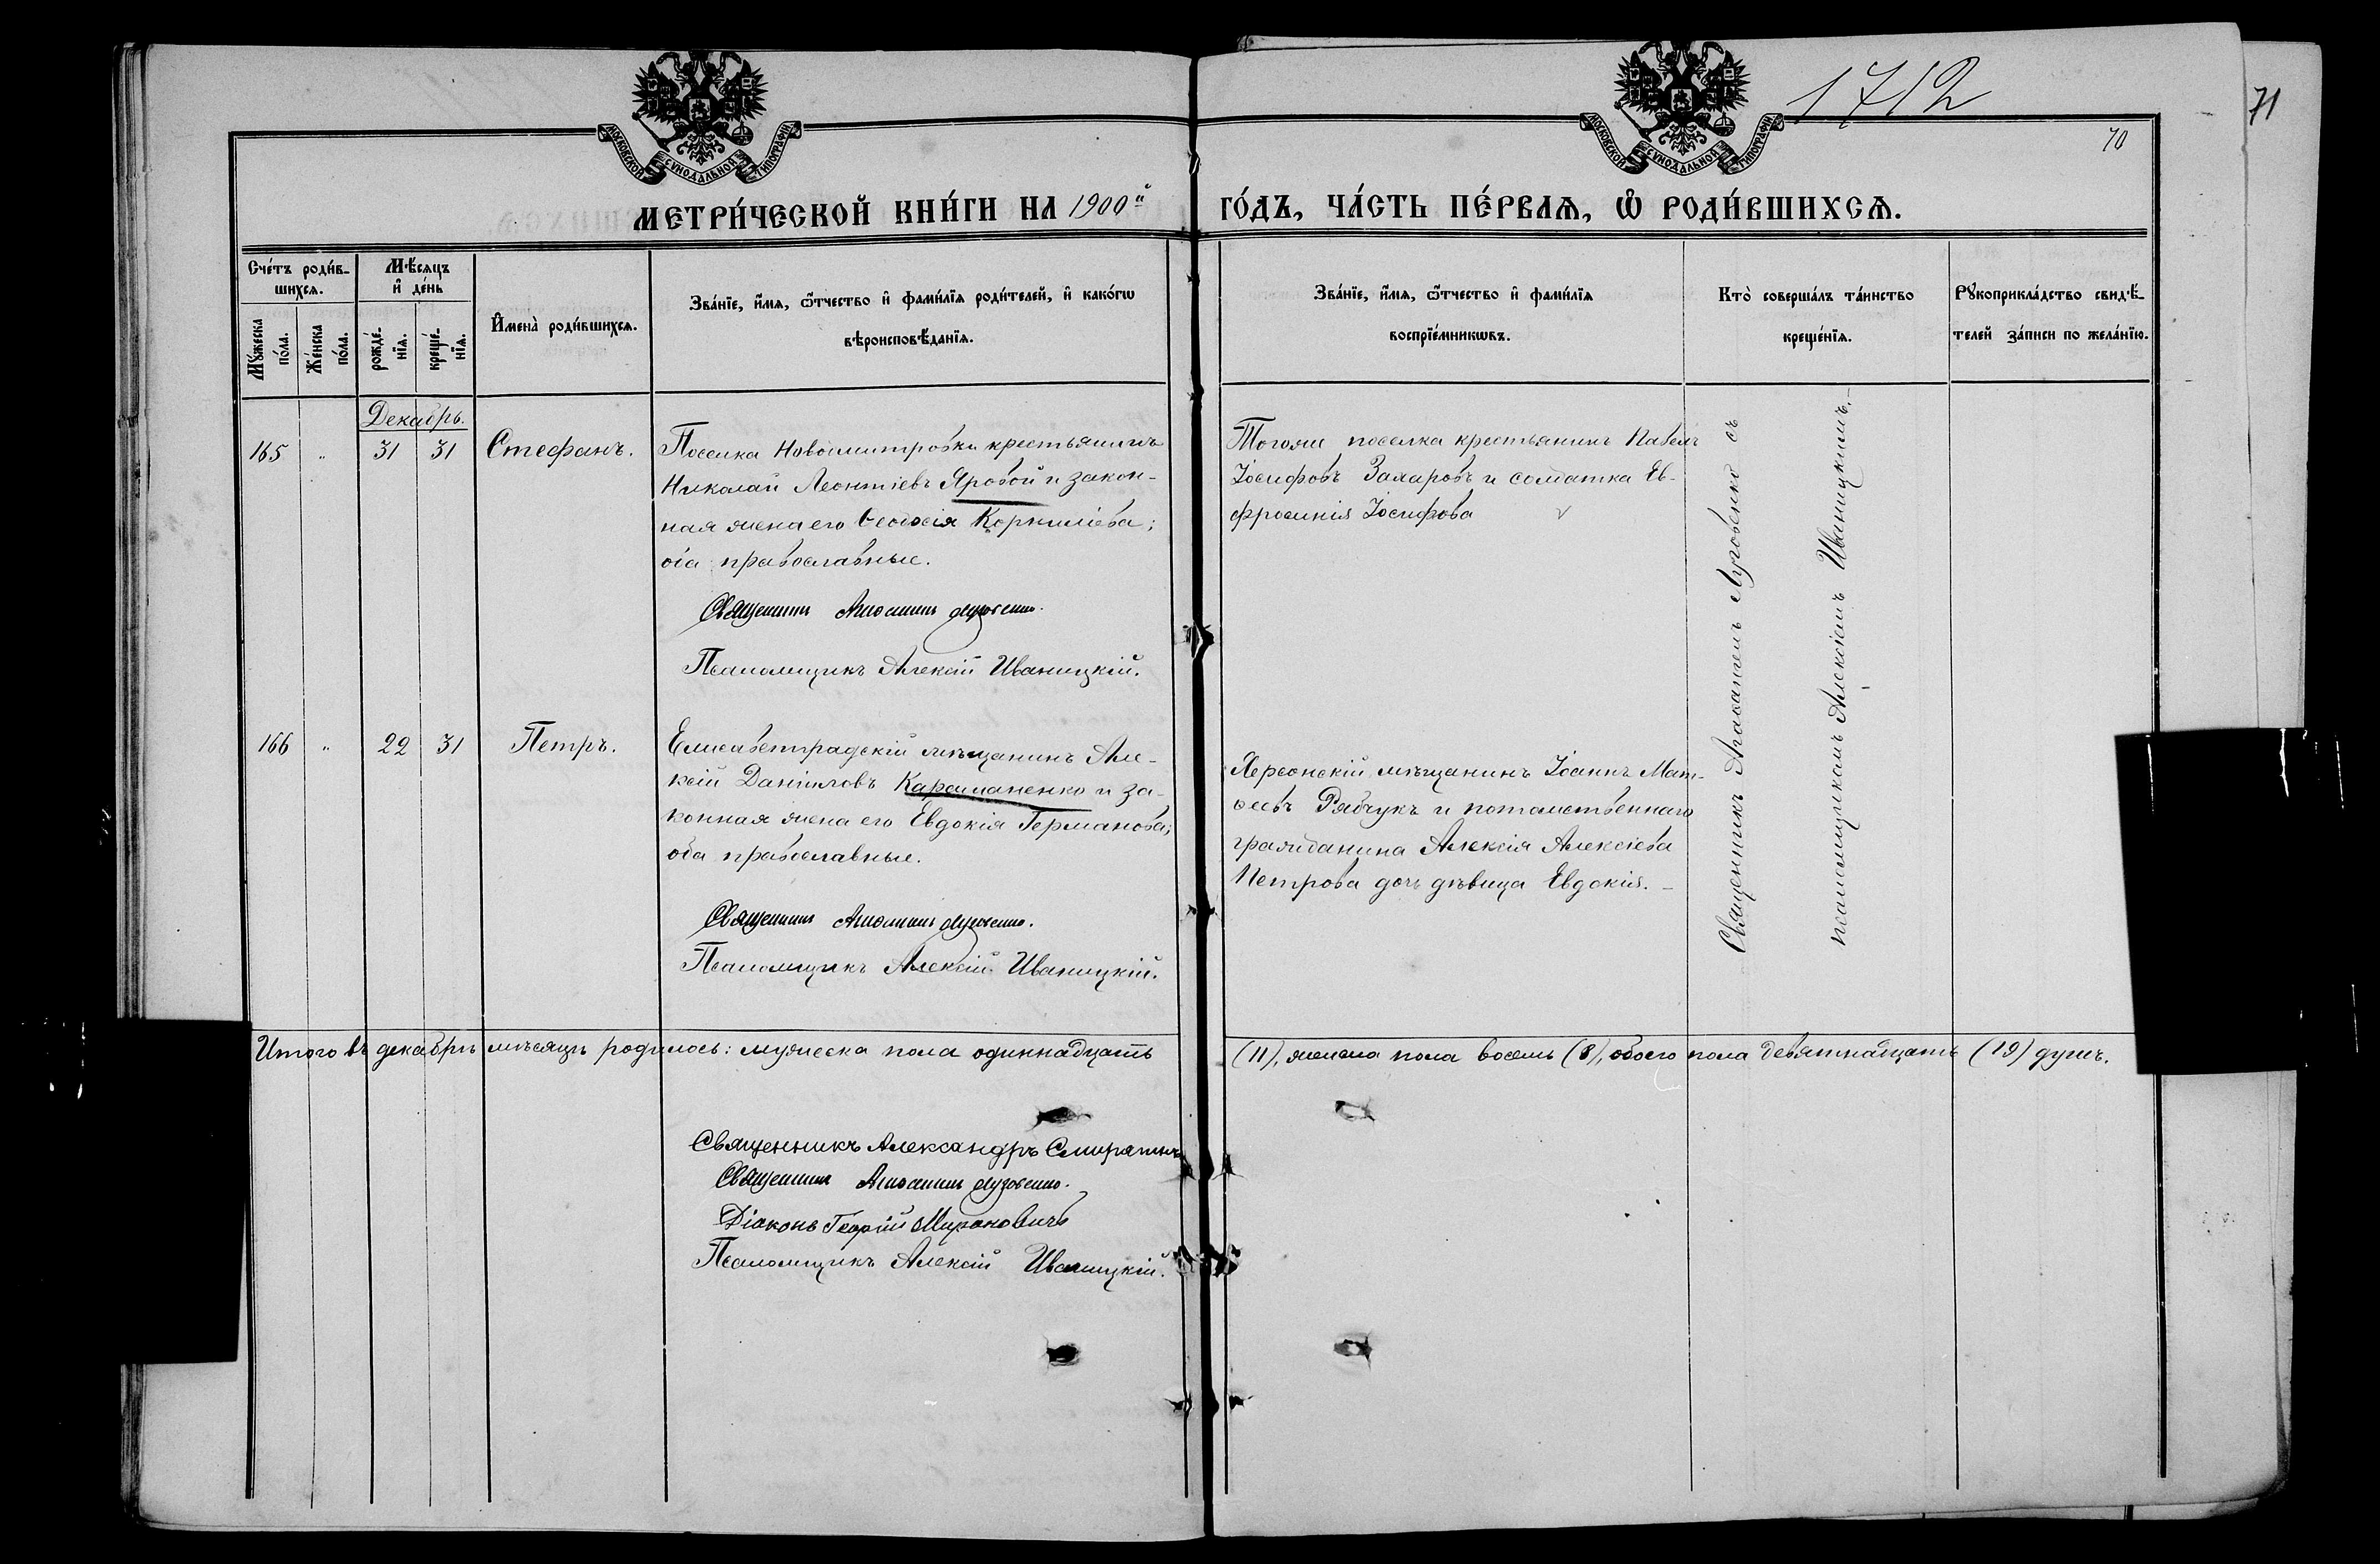 1712
71
70
МОСКОВСКОЙ СѴНОДАЛЬНОЙ ТИПОГРАФІИ
МОСКОВСКОЙ СѴНОДАЛЬНОЙ ТИПОГРАФІИ
МЕТРИ́ЧЕСКОЙ КНИ́ГИ НА 1900й ГО́ДЪ, ЧА́СТЬ ПЕ́РВАѦ, Ѽ РОДИ́ВШИХСѦ.
Сче́тъ роди́в-
шихсѧ.
Мꙋ́жеска
по́ла.
Же́нска
по́ла.
Мѣ́сяцъ
и҆ де́нь
рожде́-
нїѧ.
креще́-
нїѧ.
И҆мена̀ роди́вшихсѧ.
Зва́нїе, и҆́мѧ, ѻ҆́тчество и҆ фами́лїѧ роди́телей, и҆ како́гѡ
вѣроисповѣ́данїѧ.
Зва́нїе, и҆́мѧ, ѻ҆́тчество и҆ фами́лїѧ
воспрїе́мникѡвъ.
Кто̀ соверша́лъ та́инство
креще́нїѧ.
Рꙋкоприкла́дство свидѣ́-
телей за́писи по жела́нїю.
Декабрь.
165 " 31 31 Стефанъ.
Поселка Новодмитровки крестьянинъ
Николай Леонтіевъ Яровой и закон-
ная жена его Ѳеодосія Корниліева;
оба православные.
Священникъ Агаѳангелъ Луговенко.
Псаломщикъ Алексій Иваницкій.
Тогоже поселка крестьянинъ Павелъ
Іосифовъ Захаровъ и солдатка Ев-
фросинія Іосифова
Священникъ Агаѳангелъ Луговенко съ
псаломщикомъ Алексіемъ Иваницкимъ.
166 " 22 31 Петръ.
Елисаветградскій мѣщанинъ Але-
ксій Даніиловъ Карاиманенко и за-
конная жена его Евдокія Германова;
оба православные.
Священникъ Агаѳангелъ Луговенко.
Псаломщикъ Алексій Иваницкій.
Херсонскій мѣщанинъ Іоаннъ Мат-
ѳеевъ Рябчукъ и потомственнаго
гражданина Алексія Алексіева
Петрова дочь дѣвица Евдокія.
Итого въ декабрѣ мѣсяцѣ родилось: мужеска пола одиннадцать (11), женска пола восемь (8), обоего пола девятнадцать (19) душъ.
Священникъ Александръ
Священникъ Агаѳангелъ Луговенко.
Діаконъ Георгій Мироновичъ
Псаломщикъ Алексій Иваницкій.